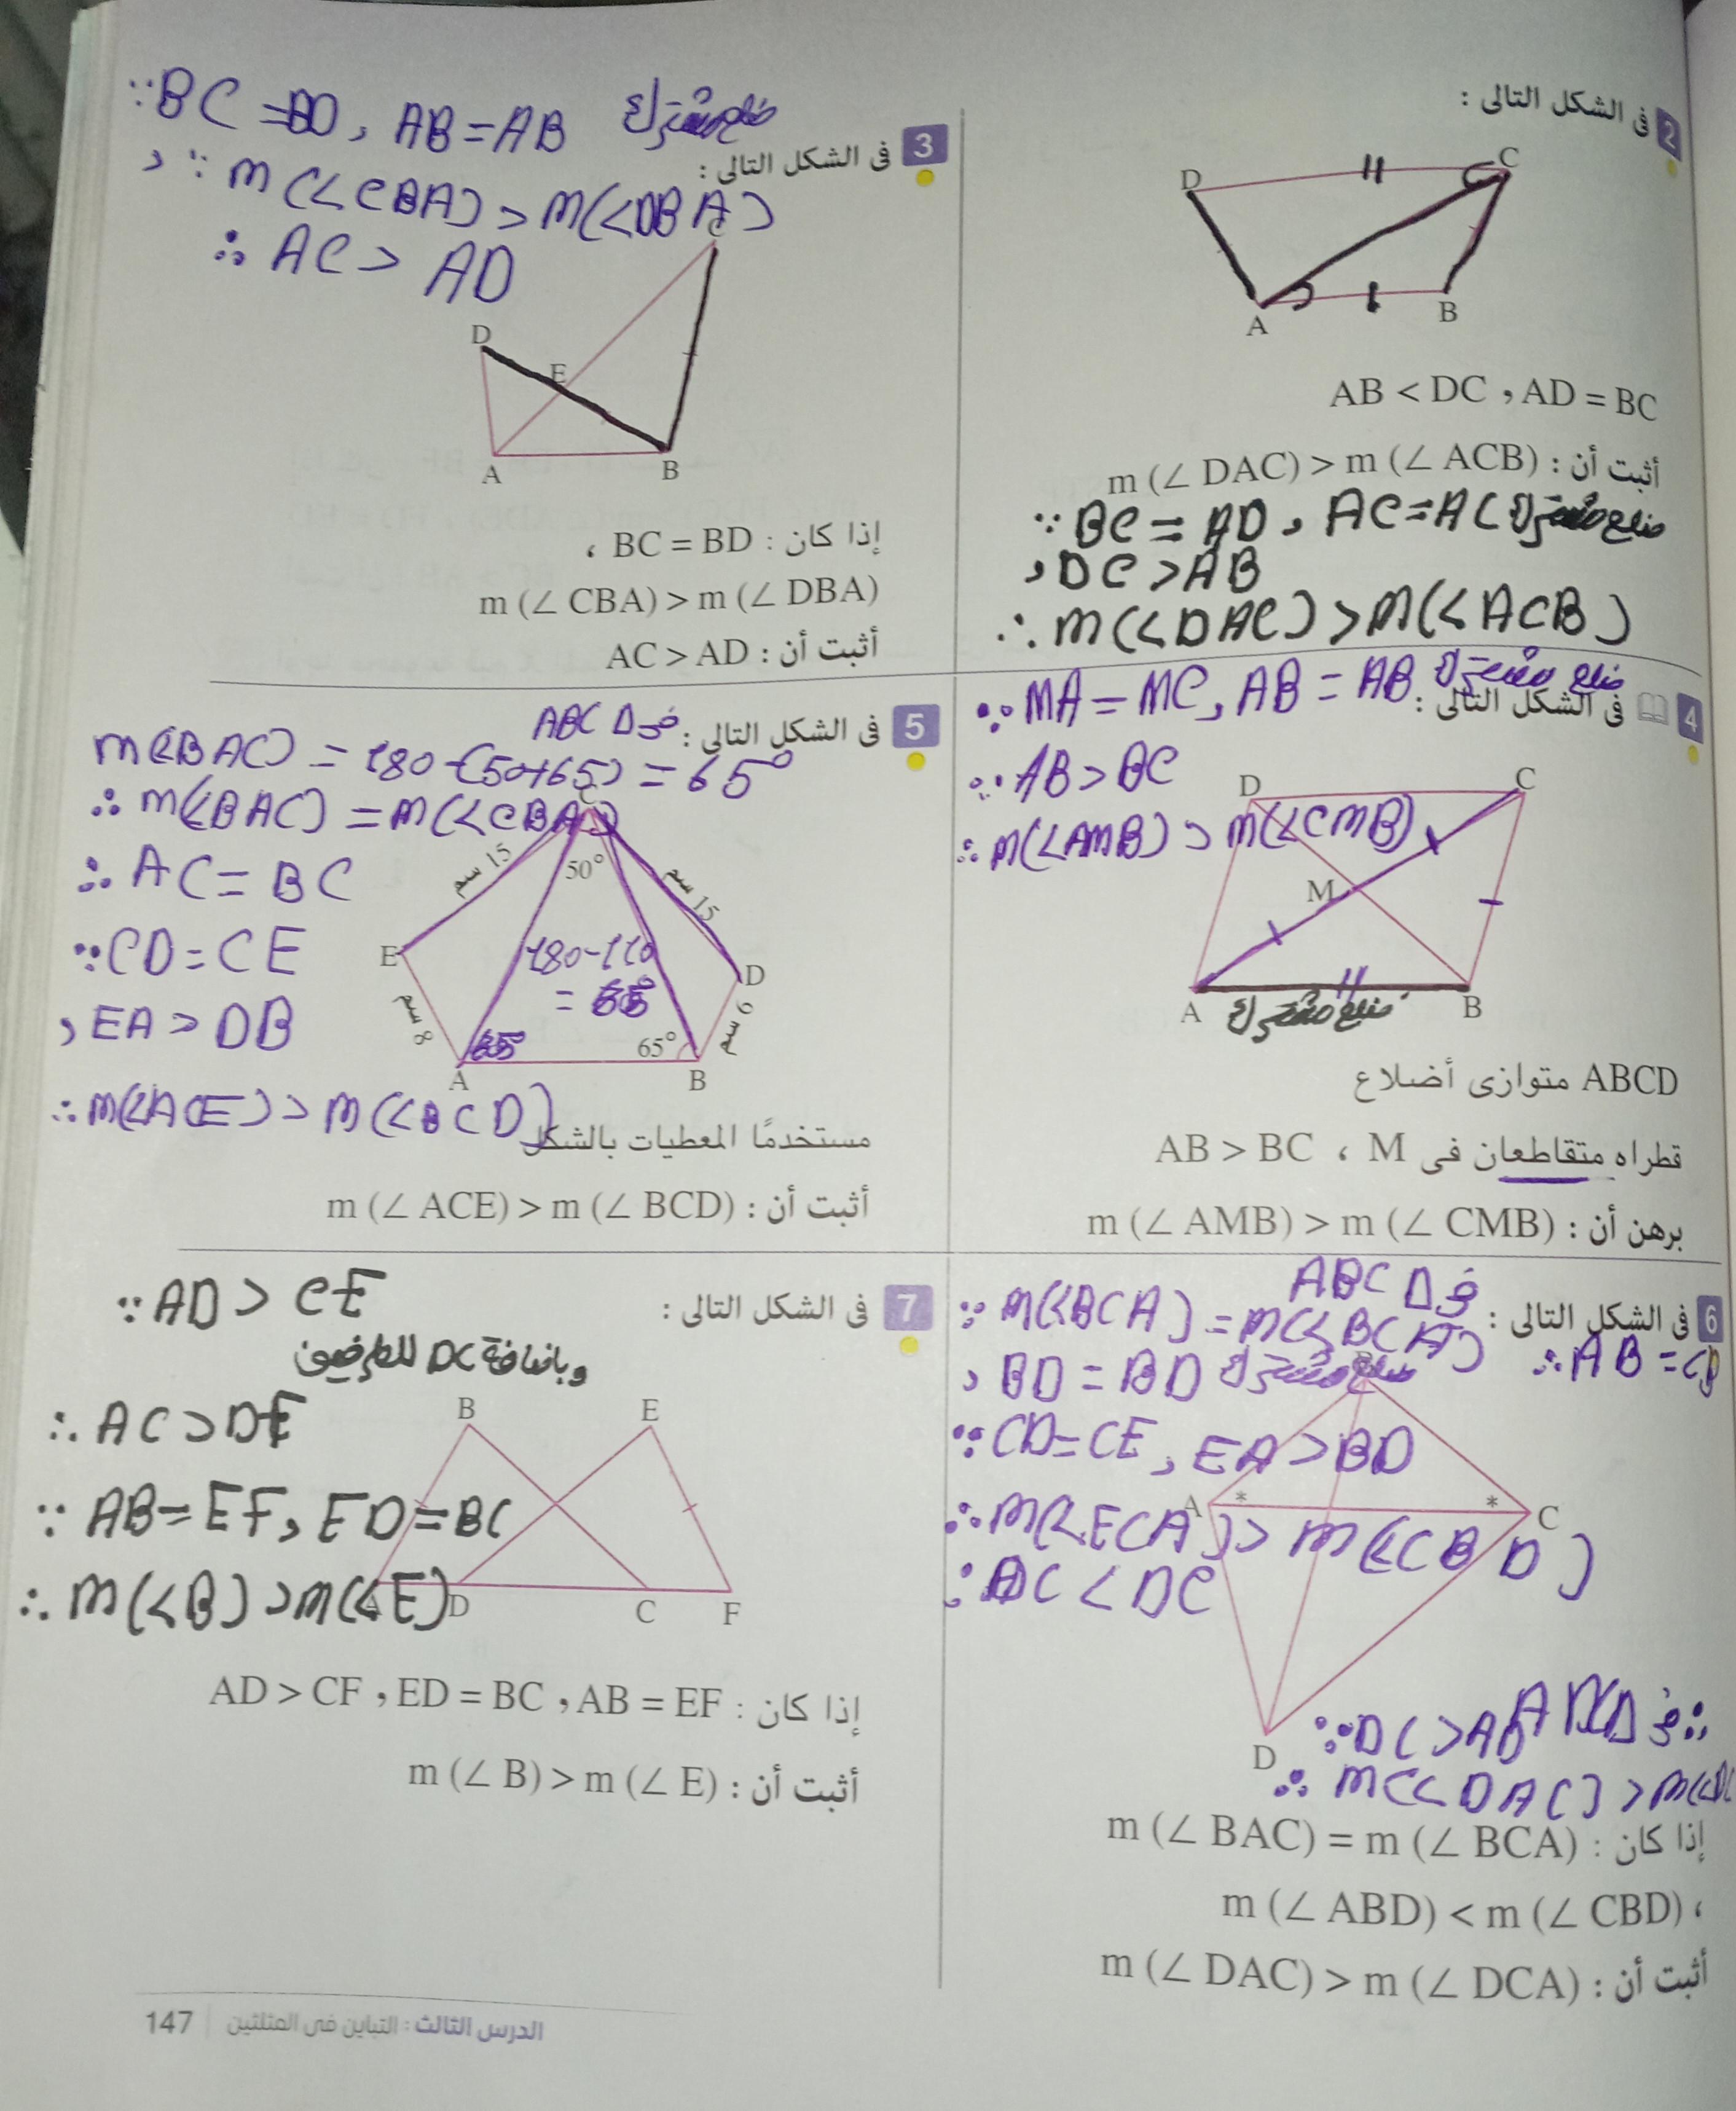 2 فى الشكل التالى :
D
C
A
B
AB < DC , AD = BC
أثبت أن : m (∠ DAC) > m (∠ ACB)
∵ BC = AD , AC = AC ضلع مشترك
, DC > AB
∴ m(∠DAC) > m(∠ACB)
∵ BC = BD , AB = AB ضلع مشترك
3 فى الشكل التالى :
, ∵ m(∠CBA) > m(∠DBA)
∴ AC > AD
C
D
E
A
B
إذا كان : BC = BD ،
m (∠ CBA) > m (∠ DBA)
أثبت أن : AC > AD
∵ MA = MC , AB = AB ضلع مشترك
4 فى الشكل التالى :
∵ AB > BC
∴ m(∠AMB) > m(∠CMB)
D
C
M
A
B
ضلع مشترك
ABCD متوازى أضلاع
قطراه متقاطعان فى M ، AB > BC
برهن أن : m (∠ AMB) > m (∠ CMB)
5 فى الشكل التالى :
فى Δ ABC
m(∠BAC) = 180-(50+65) = 65°
∴ m(∠BAC) = m(∠CBA)
∴ AC = BC
∵ CD = CE
, EA > DB
∴ m(∠ACE) > m(∠BCD)
C
15 سم
50°
15 سم
E
180-110
D
8 سم
65°
6 سم
A
B
مستخدمًا المعطيات بالشكل
أثبت أن : m (∠ ACE) > m (∠ BCD)
6 فى الشكل التالى :
فى Δ ABC
∵ m(∠BCA) = m(∠BCA)
∴ AB = CB
, BD = BD ضلع مشترك
∵ CD = CE , EA > BD
∴ m(∠ECA) > m(∠CBD)
A
*
*
C
D
∴ m(∠DAC) >
إذا كان : m (∠ BAC) = m (∠ BCA)
، m (∠ ABD) < m (∠ CBD)
أثبت أن : m (∠ DAC) > m (∠ DCA)
7 فى الشكل التالى :
∵ AD > CF
وبإضافة DC للطرفين
∴ AC > DF
∵ AB = EF , ED = BC
∴ m(∠B) > m(∠E)
B
E
A
D
C
F
إذا كان : AD > CF , ED = BC , AB = EF
أثبت أن : m (∠ B) > m (∠ E)
الدرس الثالث : التباين فى المثلثين 147